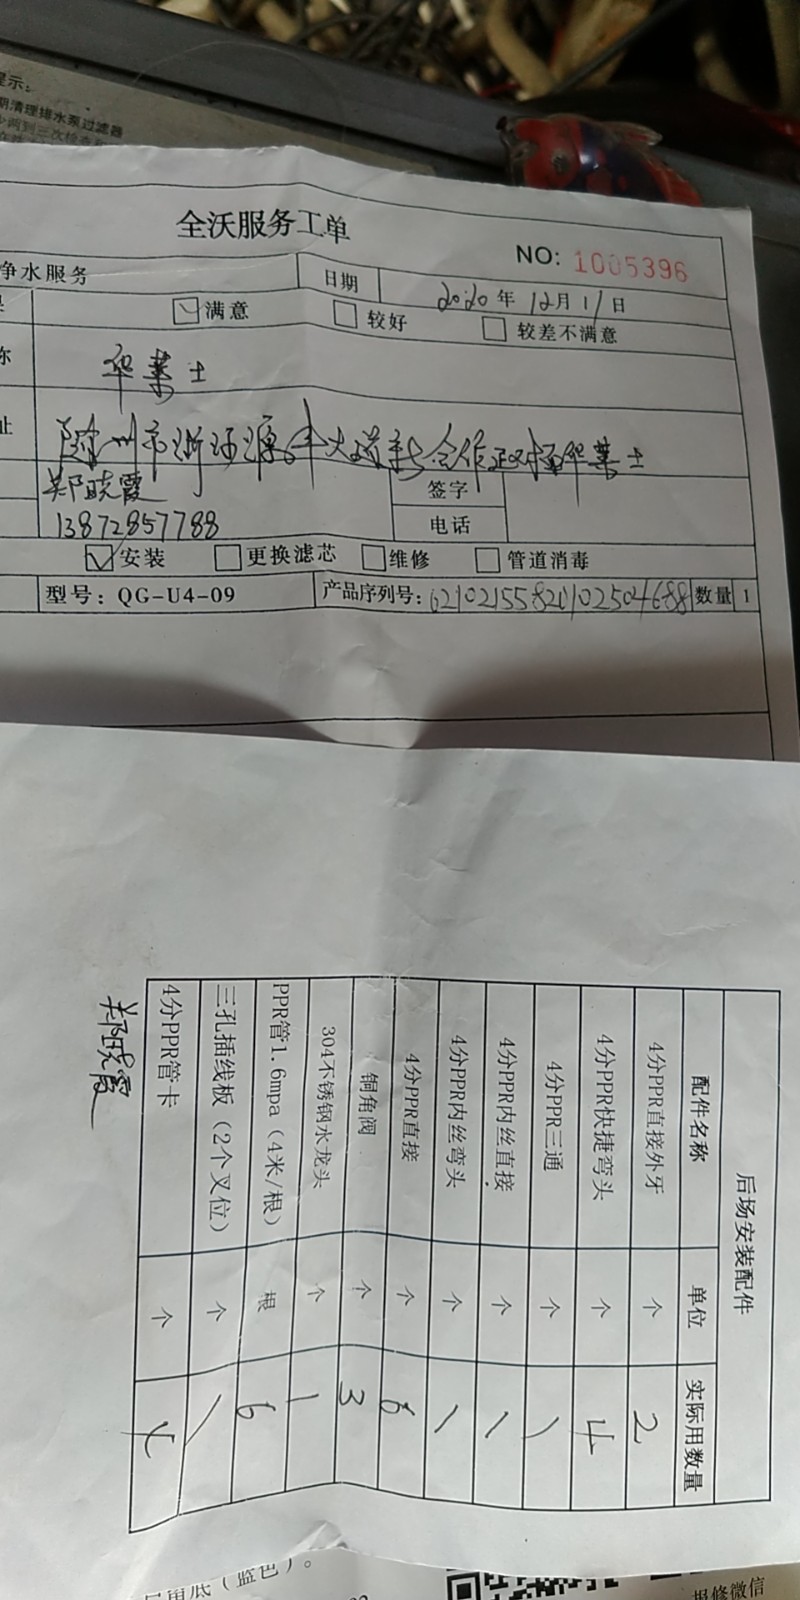 示：
期清理排水泵过滤器
全沃服务工单
NO: 1005396
净水服务 日期 2020年12月11日
满意 较好 较差不满意
华莱士
郑晓霞 签字
13872857788 电话
安装 更换滤芯 维修 管道消毒
型号：QG-U4-09 产品序列号： 数量 1
后场安装配件
配件名称 单位 实际用数量
4分PPR直接外牙 个 2
4分PPR快捷弯头 个 4
4分PPR三通 个 1
4分PPR内丝直接 个 1
4分PPR内丝弯头 个 1
4分PPR直接 个 6
铜角阀 个 3
304不锈钢水龙头 个 1
PPR管1.6mpa（4米/根） 根 6
三孔插线板（2个叉位） 个 1
4分PPR管卡 个 4
郑晓霞
（蓝色）。
报修微信